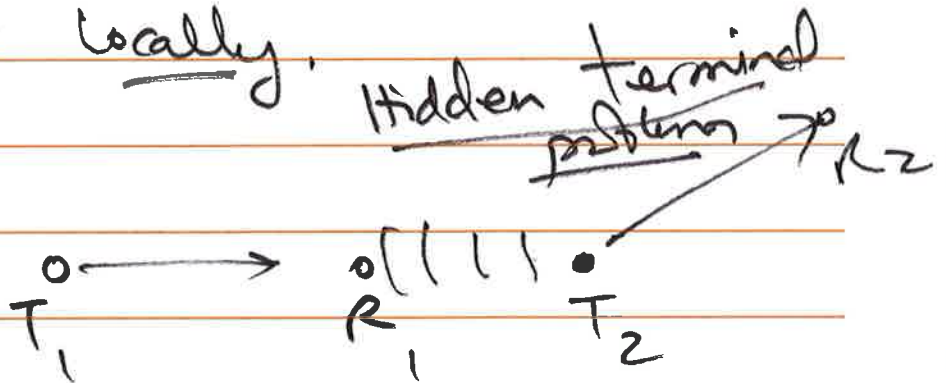 Locally.
Hidden terminal
problem
R2
T1 R1 T2